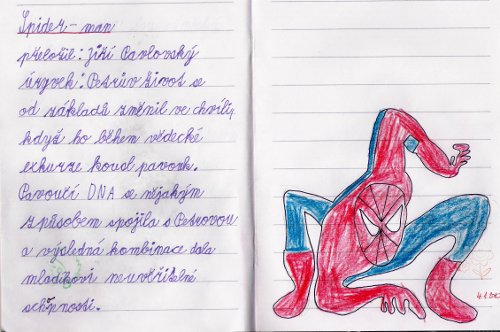 Spider-man
přeložil: Jiří Pavlovský
úryvek: Petrův život se
od základů změnil ve chvíli,
když ho během vědecké
exkurze kousl pavouk.
Pavoučí DNA se nějakým
způsobem spojila s Petrovou
a výsledná kombinace dala
mladíkovi neuvěřitelné
schopnosti.